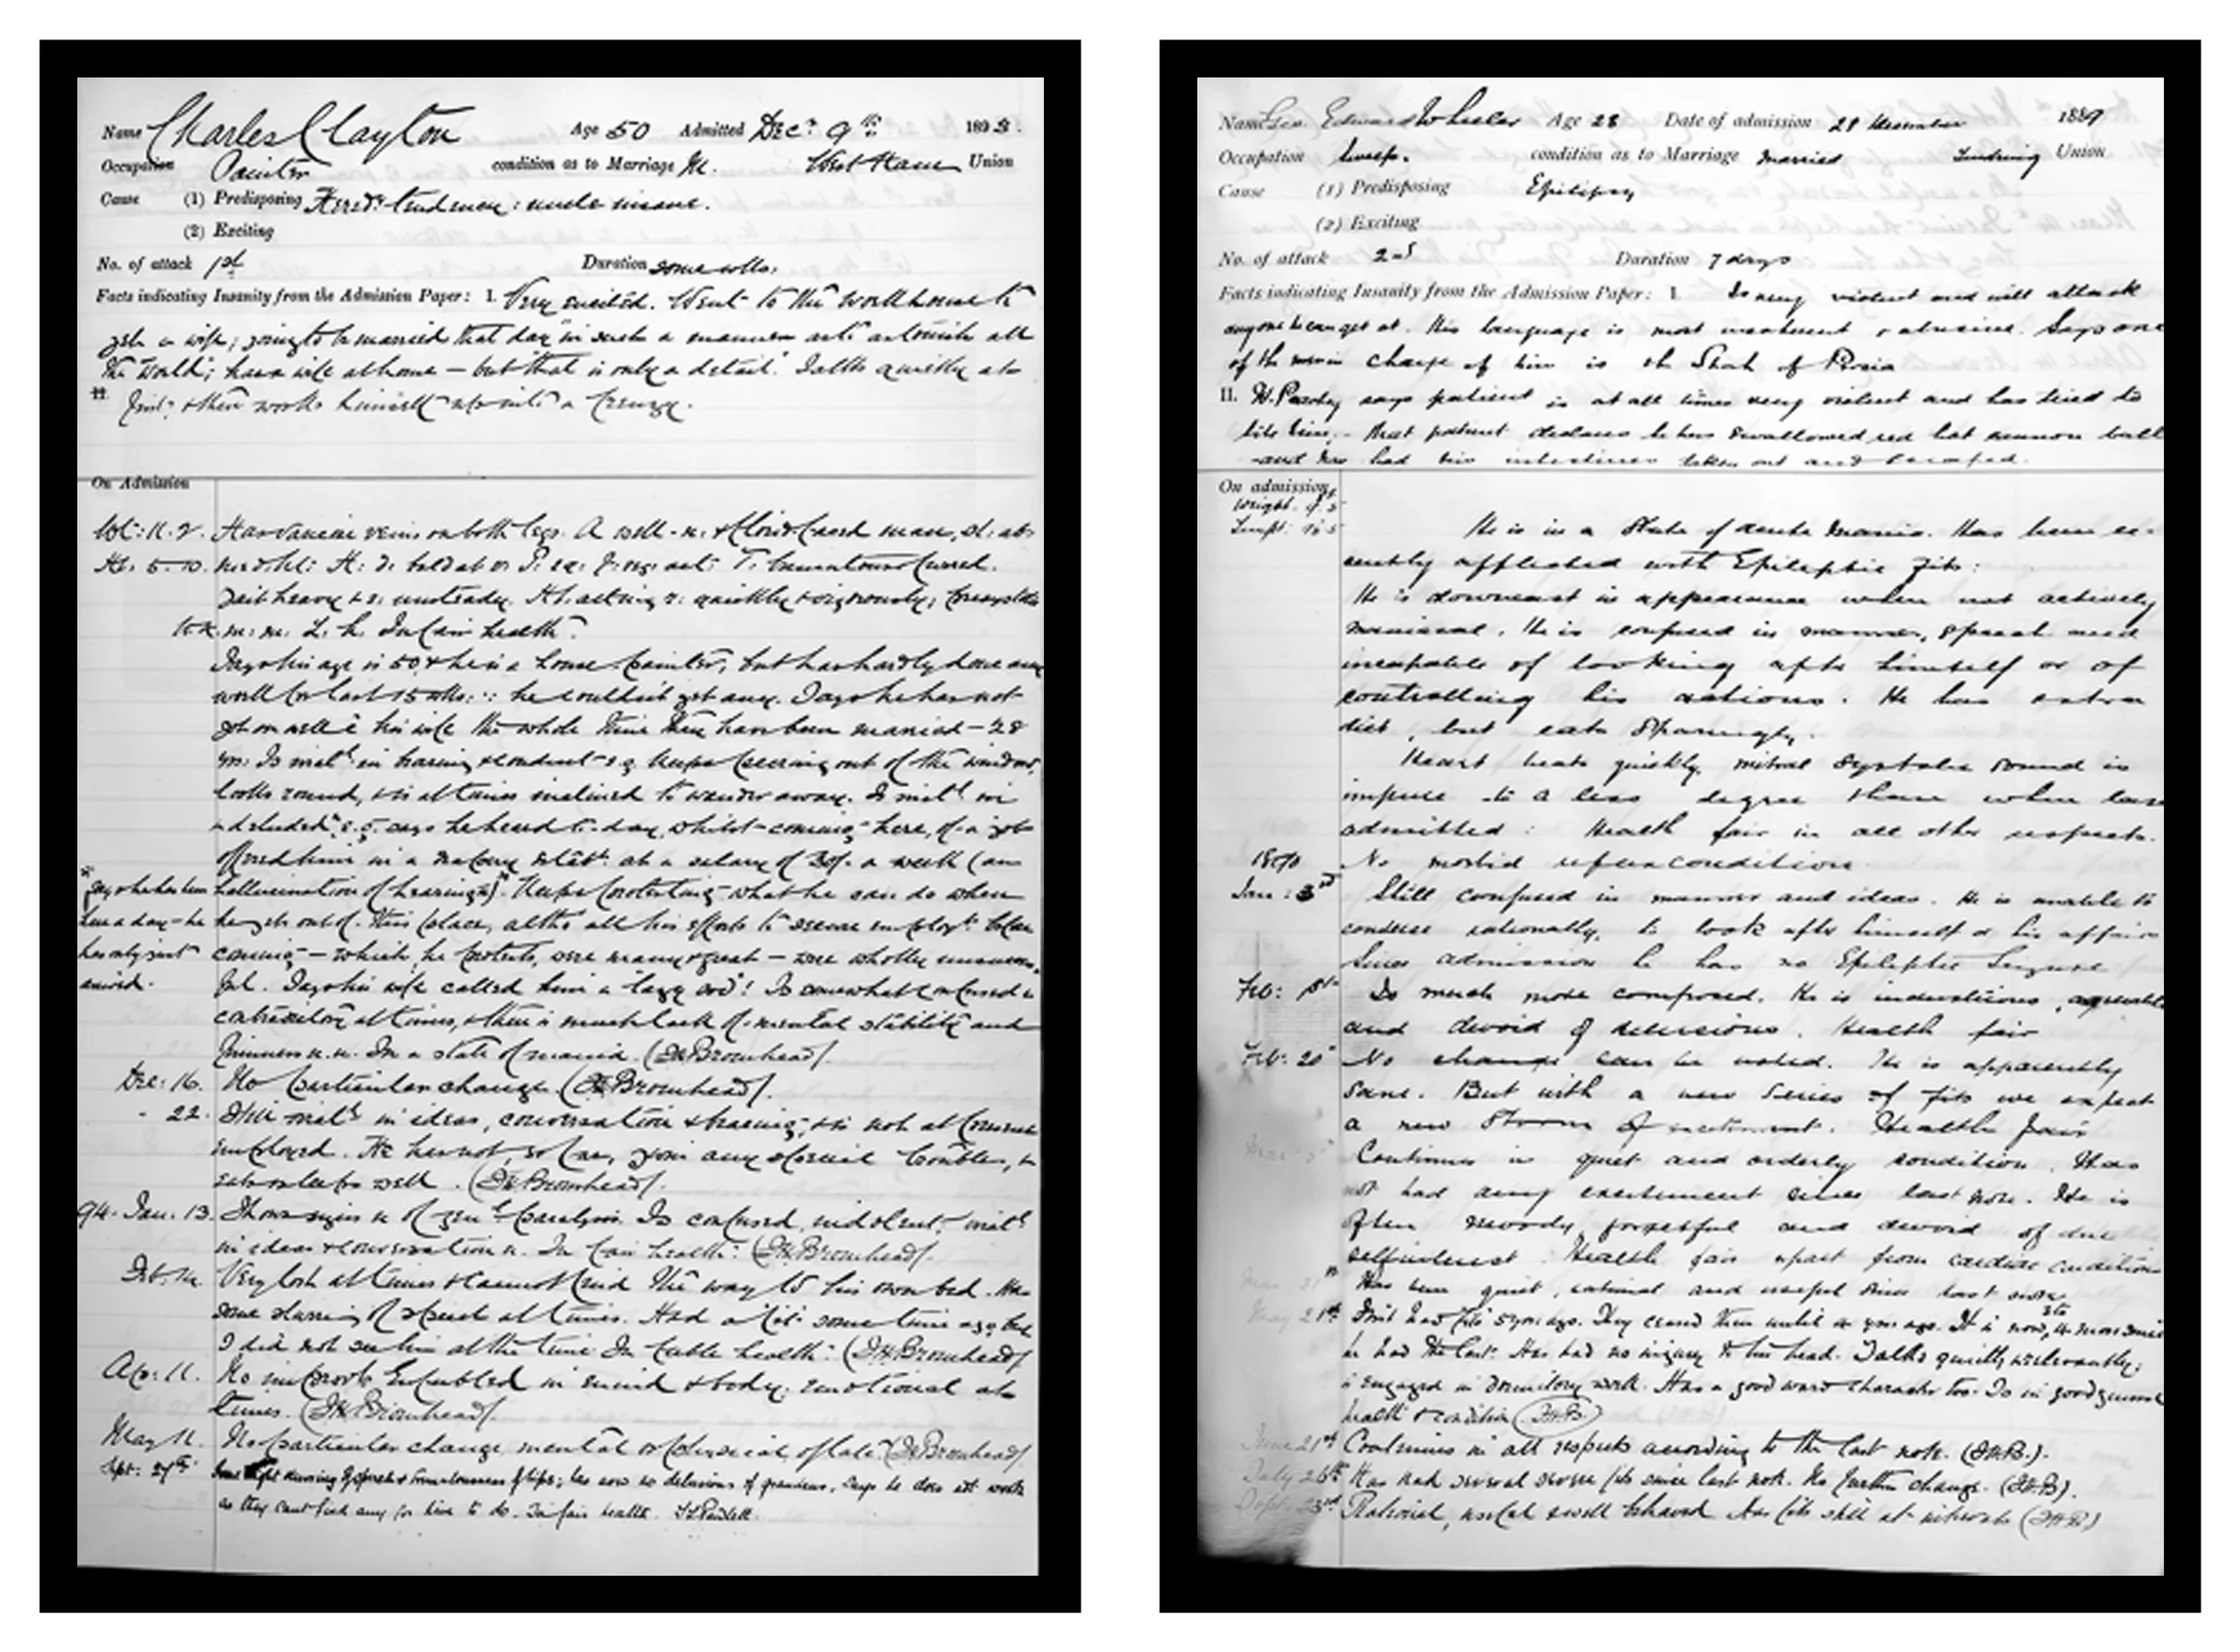 Name Charles Clayton Age 50 Admitted Decr 9th 1893.
Occupation Painter condition as to Marriage M. West Ham Union
Cause (1) Predisposing Heredy tendency: uncle insane.
(2) Exciting
No. of attack 1st Duration some wks.
Facts indicating Insanity from the Admission Paper: I. Very excited. Went to the workhouse to
get a wife; going to be married that day in such a manner as to astonish all
the World; has a wife at home – but that is only a detail. Talks quietly at
II. first & then works himself up into a frenzy.
On Admission
Wt: 11. 2. Has varicose veins on both legs. A well-n. & florid faced man,
Ht. 5–10.
Gait heavy & unsteady. Ht. acting quickly & vigorously;
In fair health.
Says his age is 50 & he is a house painter, but has hardly done any
work for last 15 wks: ∵ he couldn't get any. Says he has not
got on well c̄ his wife the whole time they have been married – 28
yrs. Is in bearing & conduct e.g. keeps peering out of the window,
looks round, & is at times inclined to wander away. Is in
deluded, e.g. says he heard to-day, whilst coming here, of a job
offered him in a at a salary of 30/- a week (an
* Says he has been hallucination of hearing)*. Keeps protesting what he can do when
here a day – he he gets out of this place, altho all his efforts to secure employt before
has only just coming – which, he protests, were many & great – were wholly unsuccess-
arrived. ful. Says his wife called him a "lazy sod"! Is somewhat confused &
contradictory at times, & there is much lack of mental stability and
firmness In a state of mania. (F. H. Bromhead).
Dec: 16. No particular change. (F. H. Bromhead).
- 22. Still in ideas, conversation & bearing, & is not at present
employed. He has not, so far, given any special trouble, &
eats & sleeps well. (F. H. Bromhead).
94. Jan. 13. Shows signs of genl paralysis. Is confused, indolent,
in ideas & conversation In fair health. (F. H. Bromhead).
Feb. 14. Very lost at times & cannot find the way to his own bed. Has
some slurring of speech at times. Had a fit some time ago but
I did not see him at the time. In feeble health. (F. H. Bromhead)
Apr: 11. No improvt. Enfeebled in mind & body; emotional at
times. (F. H. Bromhead).
May 11. No particular change mental or physical of late. (F. H. Bromhead)
Sept: 27th Some slurring of speech & tremulousness of lips; has now no delusions of grandeur. Says he does not work
as they cant find any for him to do. In fair health.
Name Geo. Edward Wheeler Age 28 Date of admission 28 December 1889
Occupation Sweep. condition as to Marriage Married Tendring Union
Cause (1) Predisposing Epilepsy
(2) Exciting
No. of attack 2nd Duration 7 days
Facts indicating Insanity from the Admission Paper: I. Is very violent and will attack
anyone he can get at. His language is most incoherent & abusive. Says one
of the men in charge of him is the Shah of Persia
II. says patient is at all times very violent and has tried to
bite him, – that patient declares he has swallowed red hot cannon ball
– and has had his intestines taken out and scraped.
On admission
Weight
Tempt:
He is in a State of acute Mania. Has been re-
cently afflicted with Epileptic Fits:
He is downcast in appearance when not actively
maniacal. He is confused in manner, speech and
incapable of looking after himself or of
controlling his actions. He has extra
diet, but eats sparingly.
Heart beats quickly, mitral systolic sound is
impure to a less degree than when last
admitted: Health fair in all other respects.
1890 No morbid reflex condition.
Jan: 3rd Still confused in manner and ideas. He is unable to
converse rationally, to look after himself & his affairs
Since admission he has no Epileptic Seizure
Feb: Is much more composed. He is industrious, agreeable
and devoid of delusions. Health fair
Feb: 20 No change can be noted. He is apparently
sane. But with a new Series of fits we expect
a new Storm of excitement. Health fair
Continues in quiet and orderly condition. Has
not had any excitement since last note. He is
often moody, forgetful and devoid of due
self-interest. Health fair apart from cardiac condition
Has been quiet, rational and useful since last note
May 21st First had fits 5 yrs ago. They ceased then until 4 yrs ago. It is now 4 mos since
he had the last. Has had no injury to his head. Talks quietly & relevantly;
is engaged in dormitory work. Has a good ward character too. Is in good general
health & condition (F.H.B.)
June 21st Continues in all respects according to the last note. (F.H.B.).
July 26th Has had several severe fits since last note. No further change. (F.H.B).
Sept. 23rd Rational, useful & well behaved. Has fits still at intervals (F.H.B)